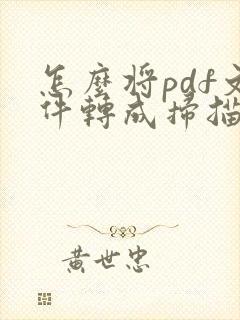 怎麼将pdf文
件轉成掃描
黃世忠